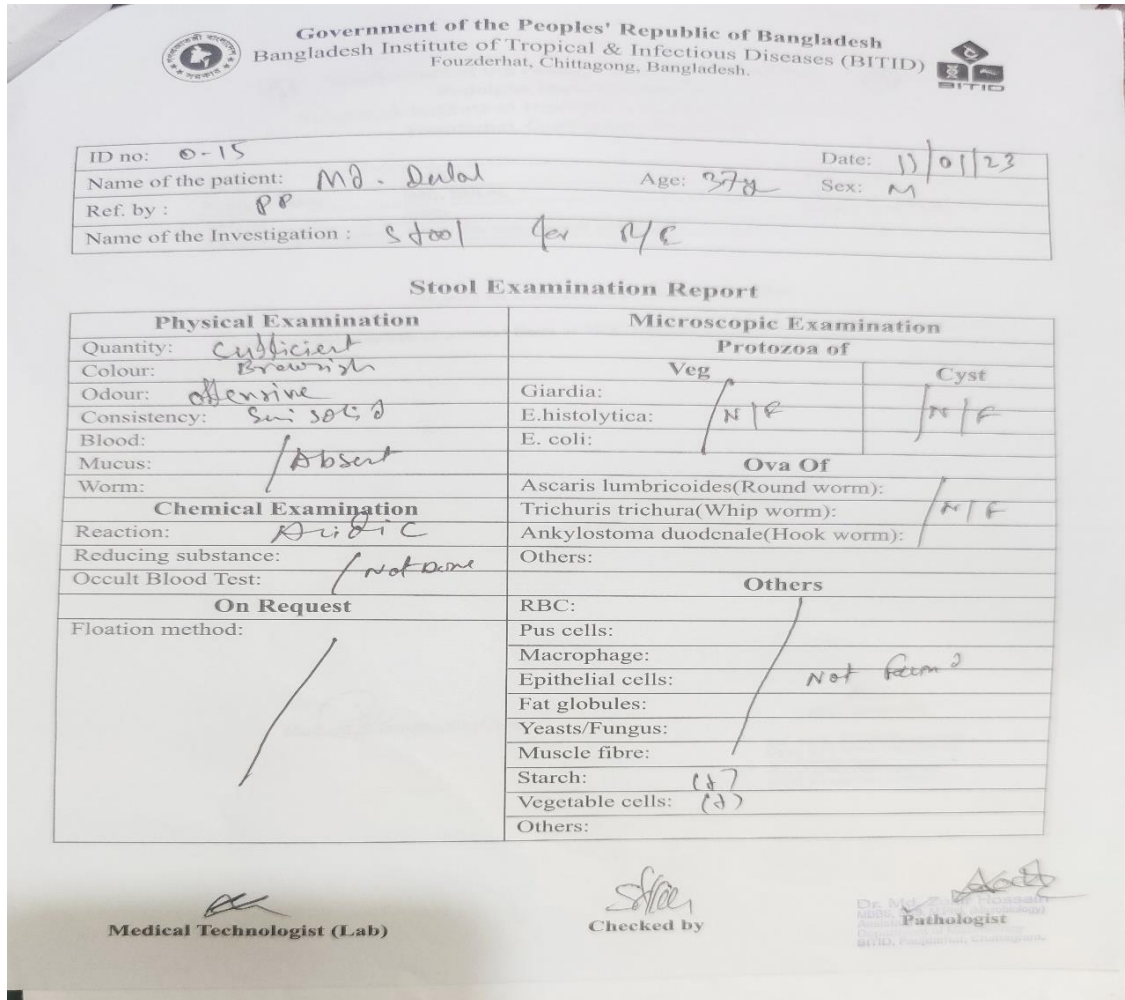 Government of the Peoples' Republic of Bangladesh
Bangladesh Institute of Tropical & Infectious Diseases (BITID)
Fouzderhat, Chittagong, Bangladesh.
BITID
ID no: 0-15 Date: 11/01/23
Name of the patient: Md. Dulal Age: 37y Sex: M
Ref. by : PP
Name of the Investigation : Stool for R/E
Stool Examination Report
Physical Examination
Quantity: Sufficient
Colour: Brownish
Odour: offensive
Consistency: Semi solid
Blood:
Mucus: Absent
Worm:
Chemical Examination
Reaction: Acidic
Reducing substance:
Occult Blood Test: Not Done
On Request
Floation method:
Microscopic Examination
Protozoa of
Veg Cyst
Giardia:
E.histolytica: N/F N/F
E. coli:
Ova Of
Ascaris lumbricoides(Round worm):
Trichuris trichura(Whip worm): N/F
Ankylostoma duodcnale(Hook worm):
Others:
Others
RBC:
Pus cells:
Macrophage:
Epithelial cells: Not found
Fat globules:
Yeasts/Fungus:
Muscle fibre:
Starch: (+)
Vegetable cells: (+)
Others:
Medical Technologist (Lab)
Checked by
Dr. Md. Hossain
Pathologist